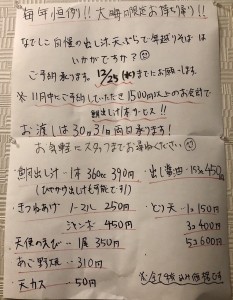 毎年恒例!! 大晦日限定お持ち帰り!!
なでしこ自慢の出し汁、天ぷらで年越しそばは
いかがですか?
ご予約承ります。12/25(水)までにお願いします。
※11月中にご予約していただき1500円以上のお会計で
朝出し汁1本サービス!!
お渡しは30日31日両日承ります!
お気軽にスタッフまでお尋ねください
・朝出し汁 1本 360cc 390円
・出し醤油 1本 450円
(ひやかけ出汁も可能です!)
・きつねあげ ノーマル 250円
ジャンボ 450円
・とり天 1コ 150円
3コ 400円
5コ 600円
・天使のえび 1尾 350円
・あご野焼 310円
・天カス 50円
※全て税込み価格です